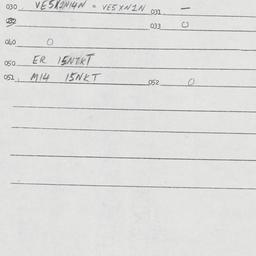 030 VE5X2N14N = VE5XN2N 031 —
032 033 0
040 0
050 ER 15NTKT
051, M14 15NKT 052 0